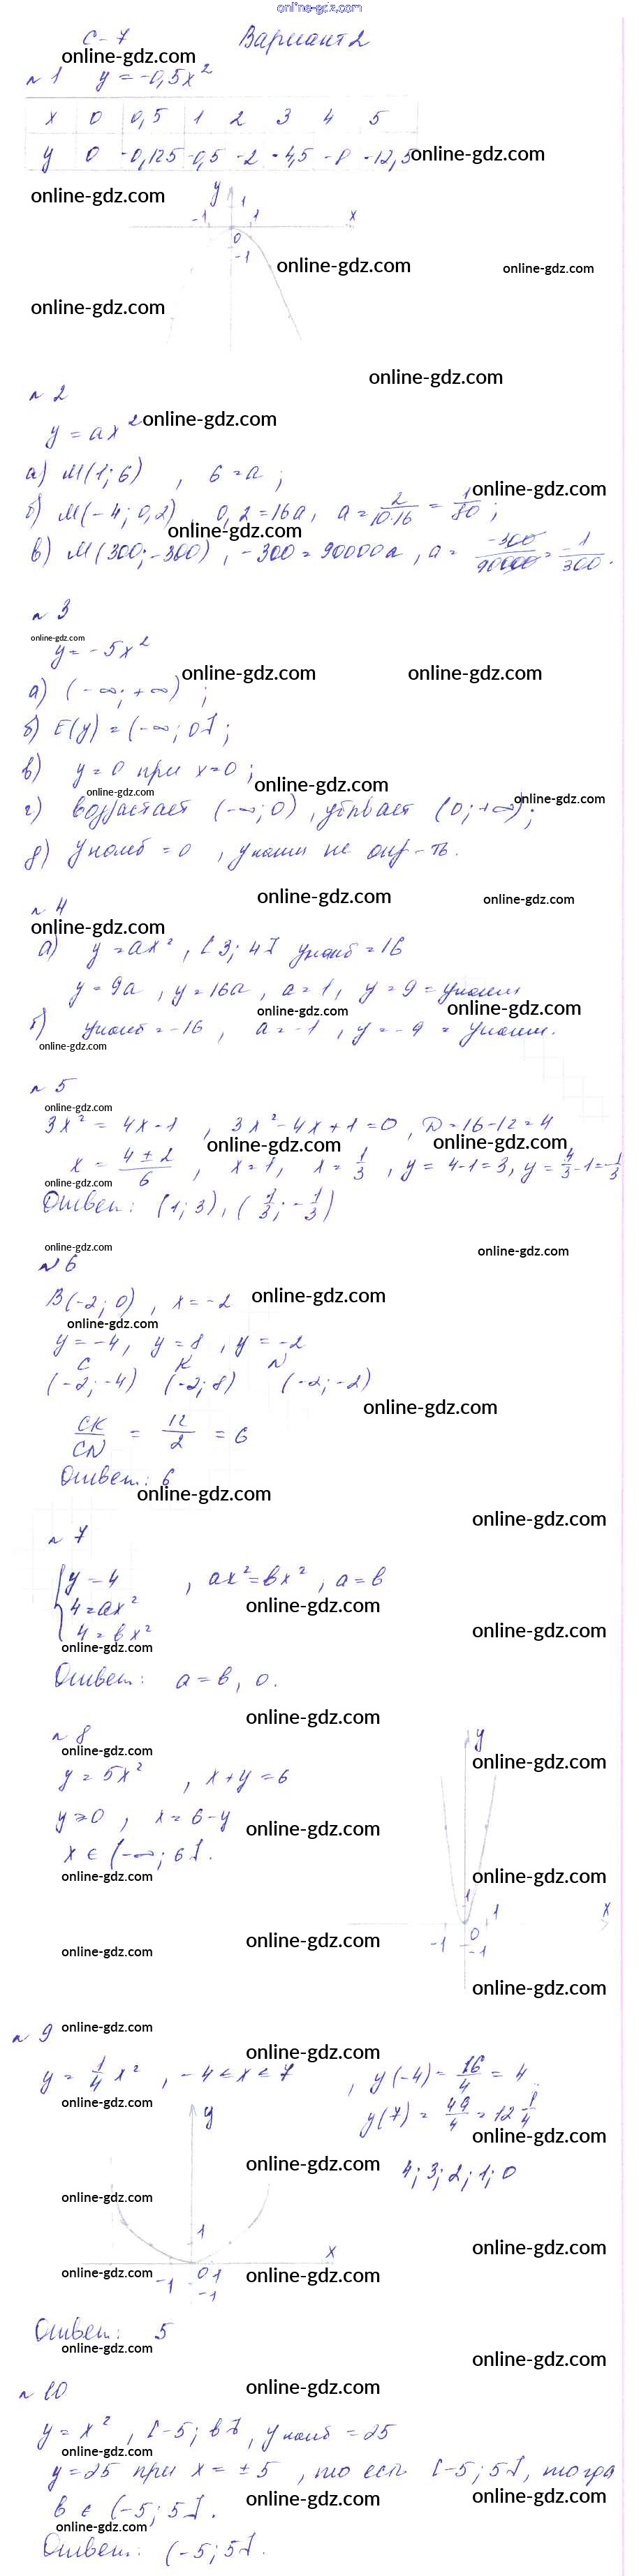 online-gdz.com
С-7 Вариант 2
online-gdz.com
№1 y = -0,5x²
x 0 0,5 1 2 3 4 5
y 0 -0,125 -0,5 -2 -4,5 -8 -12,5
online-gdz.com
online-gdz.com
y
-1 1 1 x
0
-1
online-gdz.com
online-gdz.com
online-gdz.com
online-gdz.com
№2
y = ax²
online-gdz.com
а) M(1; 6) , 6 = a ;
online-gdz.com
б) M(-4; 0,2) , 0,2 = 16a, a = 2/(10·16) = 1/80 ;
online-gdz.com
в) M(300; -300) , -300 = 90000a , a = -300/90000 = -1/300 .
№3
online-gdz.com
y = -5x²
online-gdz.com online-gdz.com
а) (-∞; +∞) ;
б) E(y) = (-∞; 0] ;
в) y = 0 при x = 0 ;
online-gdz.com
online-gdz.com online-gdz.com
г) возрастает (-∞; 0) , убывает (0; +∞) ;
д) y наиб = 0 , y наим не опр-ть.
online-gdz.com online-gdz.com
№4
online-gdz.com
а) y = ax² , [3; 4] y наиб = 16
y = 9a , y = 16a , a = 1 , y = 9 = y наим
online-gdz.com online-gdz.com
б) y наиб = -16 , a = -1 , y = -9 = y наим.
online-gdz.com
№5
online-gdz.com
3x² = 4x - 1 , 3x² - 4x + 1 = 0 , D = 16 - 12 = 4
online-gdz.com online-gdz.com
x = (4 ± 2)/6 , x = 1 , x = 1/3 , y = 4 - 1 = 3 , y = 4/3 - 1 = -1/3
online-gdz.com
Ответ: (1; 3) , (1/3; -1/3)
online-gdz.com online-gdz.com
№6
B(-2; 0) , x = -2
online-gdz.com
online-gdz.com
y = -4 , y = 8 , y = -2
C K N
(-2; -4) (-2; 8) (-2; -2)
online-gdz.com
CK/CN = 12/2 = 6
Ответ: 6
online-gdz.com
online-gdz.com
№7
y = 4 , ax² = bx² , a = b
4 = ax²
online-gdz.com
4 = bx²
online-gdz.com
online-gdz.com
Ответ: a = b , 0 .
online-gdz.com
№8
y
online-gdz.com
online-gdz.com
y = 5x² , x + y = 6
y ≥ 0 , x = 6 - y
online-gdz.com
x ∈ (-∞; 6] .
online-gdz.com
online-gdz.com
1 x
0
-1 1
-1
online-gdz.com
online-gdz.com
online-gdz.com
№9
online-gdz.com
online-gdz.com
y = 1/4 x² , -4 < x < 7 , y(-4) = 16/4 = 4
online-gdz.com
y(7) = 49/4 = 12 1/4
online-gdz.com
4; 3; 2; 1; 0
y
online-gdz.com
online-gdz.com
1
online-gdz.com
x
-1 0 1
-1
online-gdz.com
online-gdz.com
Ответ: 5
online-gdz.com
online-gdz.com
online-gdz.com
№10
y = x² , [-5; b] , y наиб = 25
online-gdz.com
y = 25 при x = ±5 , то есть [-5; 5] , тогда
online-gdz.com
online-gdz.com
b ∈ (-5; 5] .
online-gdz.com
Ответ: (-5; 5] .